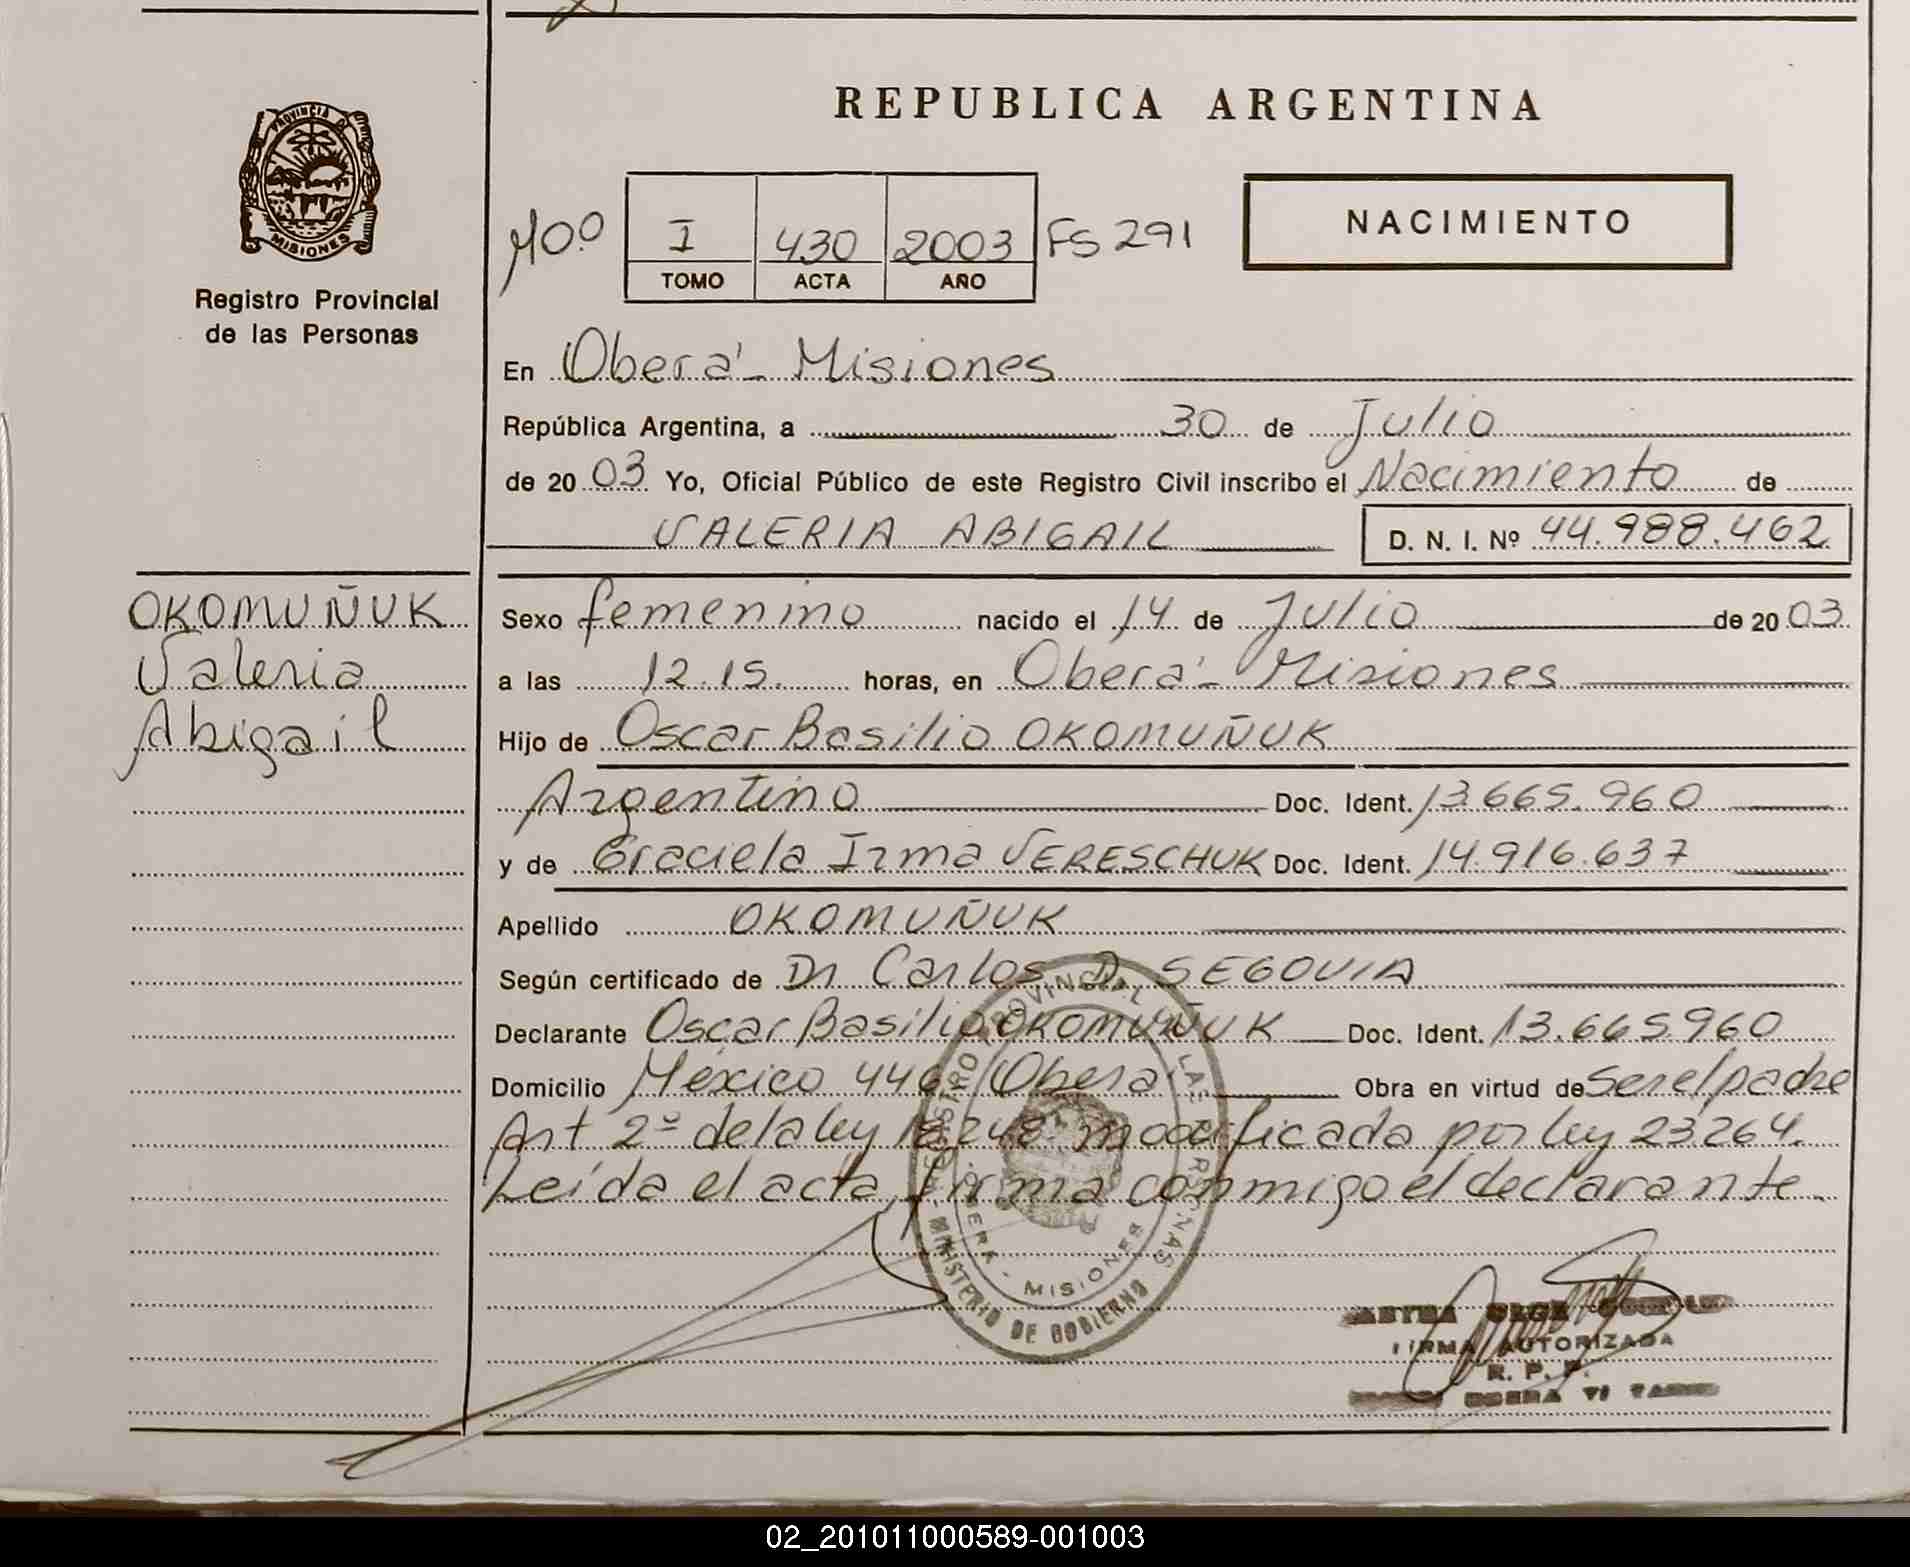 REPUBLICA ARGENTINA
PROVINCIA DE
MISIONES
Registro Provincial
de las Personas
I 430 2003 FS 291
TOMO ACTA AÑO
NACIMIENTO
En Oberá - Misiones
República Argentina, a 30 de Julio
de 20 03 Yo, Oficial Público de este Registro Civil inscribo el Nacimiento de
VALERIA ABIGAIL D. N. I. Nº 44.988.462
OKOMUÑUK
Valeria
Abigail
Sexo femenino nacido el 14 de Julio de 20 03
a las 12.15. horas, en Oberá - Misiones
Hijo de Oscar Basilio OKOMUÑUK
Argentino Doc. Ident. 13.665.960
y de Graciela Irma VERESCHUK Doc. Ident. 14.916.637
Apellido OKOMUÑUK
Según certificado de Dr Carlos D. SEGOVIA
Declarante Oscar Basilio OKOMUÑUK Doc. Ident. 13.665.960
Domicilio México 446 Oberá Obra en virtud de ser el padre
Art 2º de la ley 18.248 modificada por ley 23.264.
Leída el acta, firma conmigo el declarante.
REGISTRO PROVINCIAL DE LAS PERSONAS
OBERA - MISIONES
- MINISTERIO DE GOBIERNO
FIRMA AUTORIZADA
R. P. P.
02_201011000589-001003